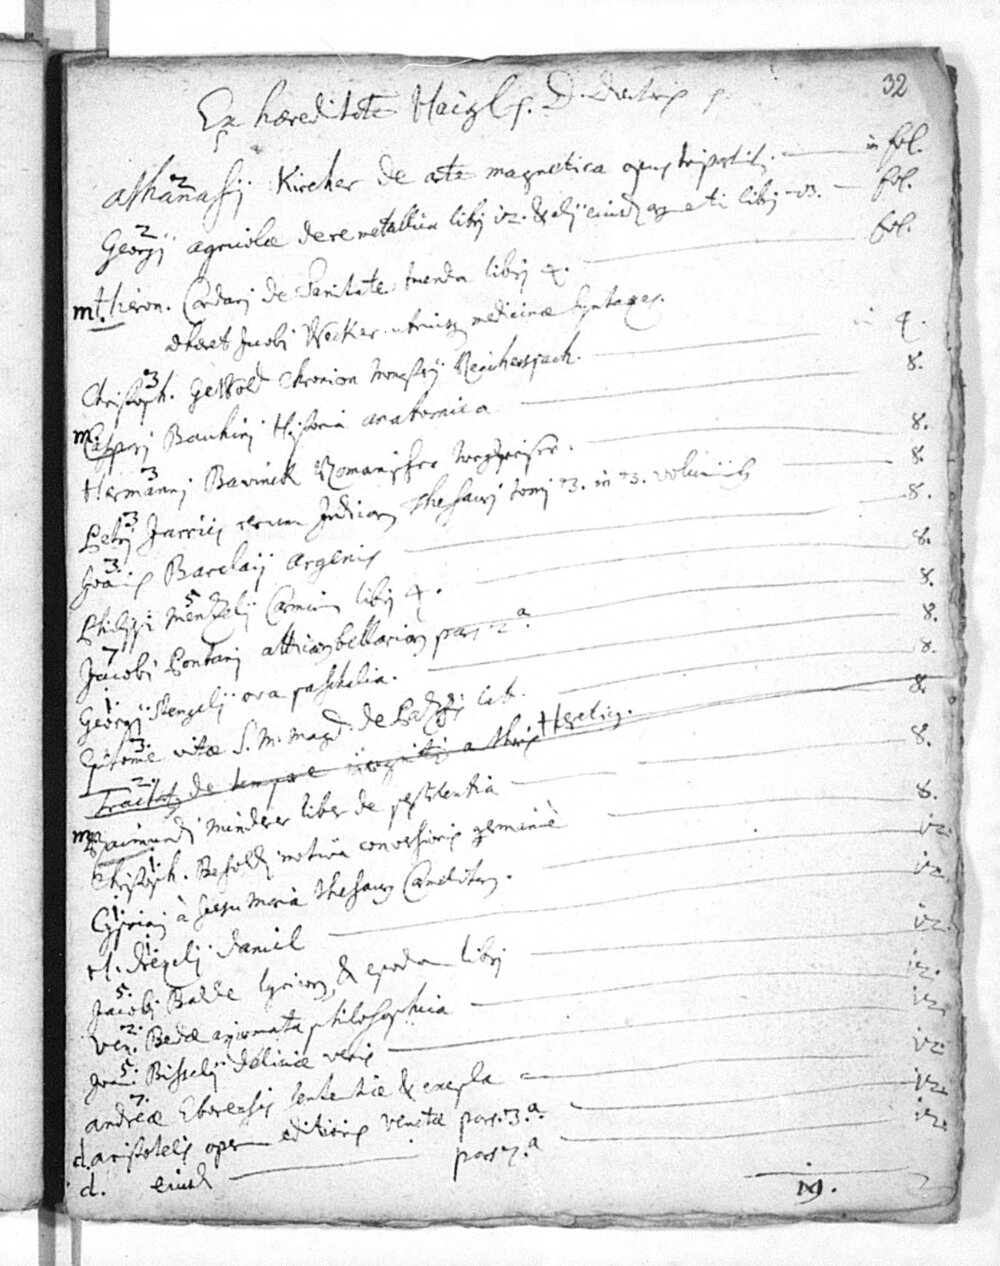 32
Ex hæreditate Haigl p. D. Doctoris p.
2 Athanasij Kircher de arte magnetica opus tripartit. in fol.
2 Georgij agricolæ de re metallica libri 12. & alij eiusd. libri fol.
m. Hieron. Cardani de Sanitate tuenda libri 4. fol.
Jacobi Wecker utriusq medicinæ Syntaxes.
3 Christoph. Gewold Chronicon Monasterij Reichersp. in 4.
m. Casparj Bauhinj Historia anatomica 8.
3 Hermannj Bavinck Romanischer wegweiser. 8.
3 Petrj Jarricij rerum Indicar. Thesauri tomi 3. in 3. 8.
3. Joānis Barclaij argenis 8.
5 Philippi Menzelij Carminum libri 4. 8.
7 Jacobi Pontanj atticar. bellarior. pars 2.a 8.
1. Georgij Stengelij ova paschalia. 8.
3. Epitome vitæ S. M. Magd. de Pazzis lat. 8.
2. Tractat de tempore 8.
m. Raimundi Minderer liber de pestilentia 8.
1 Christoph. Besoldj motiva conversionis germanicè 8.
1. Cypriani à Jesu Maria Thesaurus Carmelitar. 12.
1. H. Drexelij Daniel 12.
5. Jacobi Balde lyricor. & epodon libri 12.
2. Ven. Bedæ axiomata philosophica 12.
5. Joan. Bisselij deliciæ veris 12.
7. andreæ Eborensis sententiæ & exempla 12.
d. aristotelis operum editionis venetæ pars. 3.a 12.
d. eiusd. pars 7.a 12.